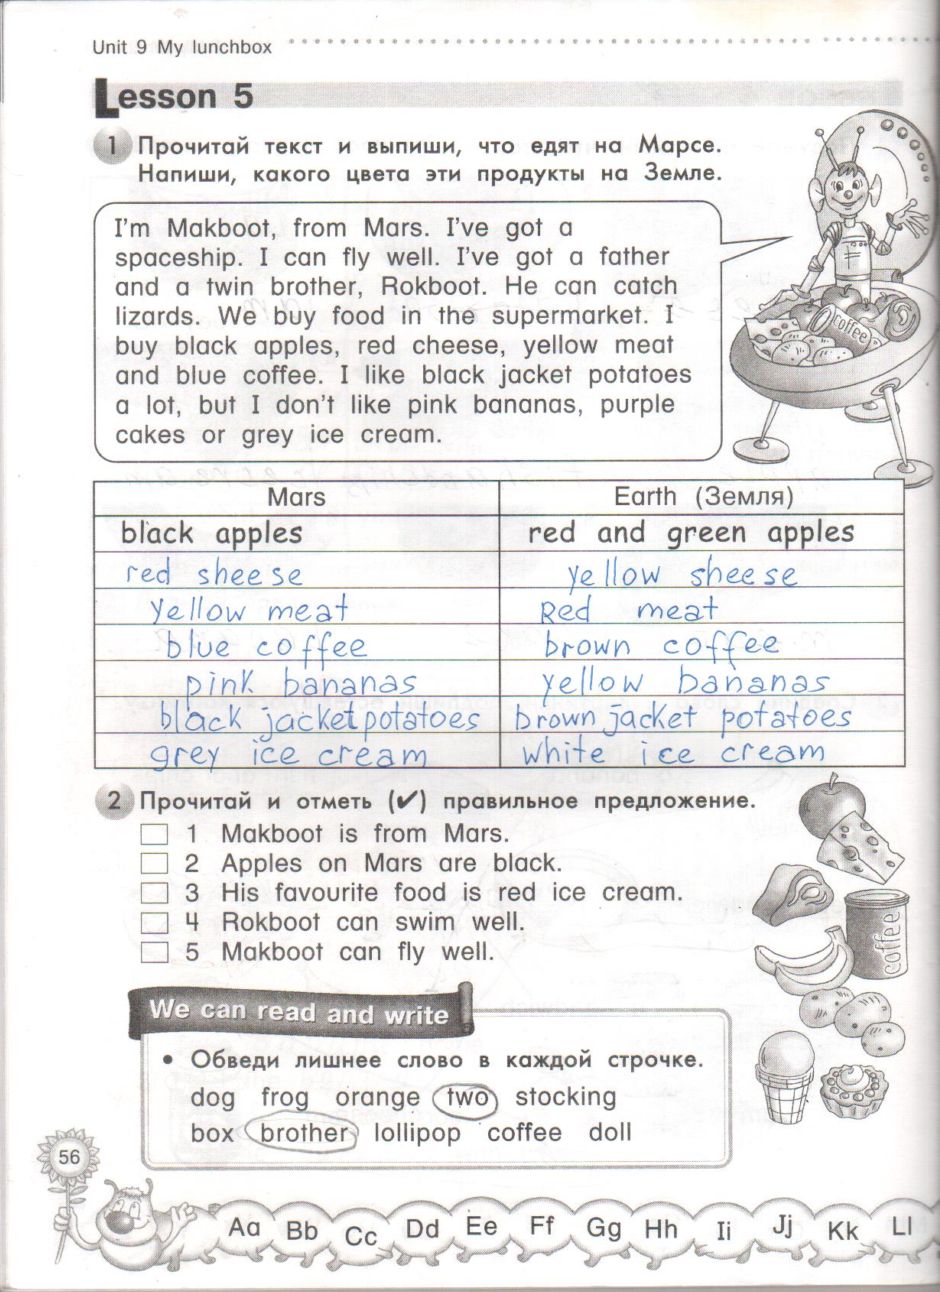 Unit 9 My lunchbox
Lesson 5
1 Прочитай текст и выпиши, что едят на Марсе.
Напиши, какого цвета эти продукты на Земле.
I'm Makboot, from Mars. I've got a
spaceship. I can fly well. I've got a father
and a twin brother, Rokboot. He can catch
lizards. We buy food in the supermarket. I
buy black apples, red cheese, yellow meat
and blue coffee. I like black jacket potatoes
a lot, but I don't like pink bananas, purple
cakes or grey ice cream.
coffee
Mars Earth (Земля)
black apples red and green apples
red sheese yellow sheese
yellow meat Red meat
blue coffee brown coffee
pink bananas yellow bananas
black jacket potatoes brown jacket potatoes
grey ice cream white ice cream
2 Прочитай и отметь (✔) правильное предложение.
1 Makboot is from Mars.
2 Apples on Mars are black.
3 His favourite food is red ice cream.
4 Rokboot can swim well.
5 Makboot can fly well.
coffee
We can read and write
• Обведи лишнее слово в каждой строчке.
dog frog orange two stocking
box brother lollipop coffee doll
56
Aa Bb Cc Dd Ee Ff Gg Hh Ii Jj Kk Ll